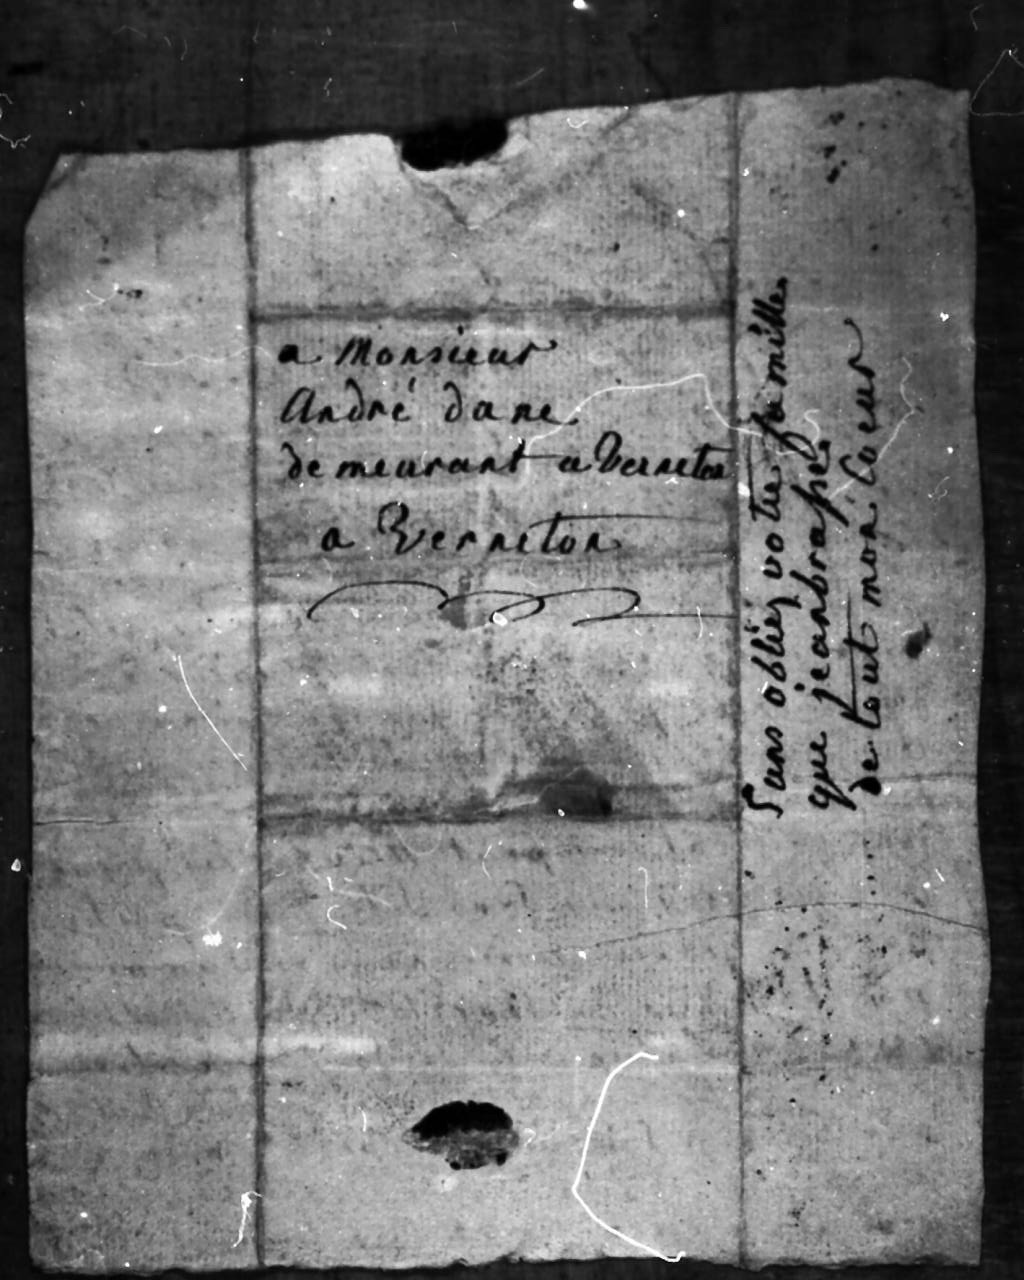 a Monsieur
André dane
demeurant a Verneton
a Verneton
Sans obliéz votre famille
que jeanbrasse
de tout mon Coeur